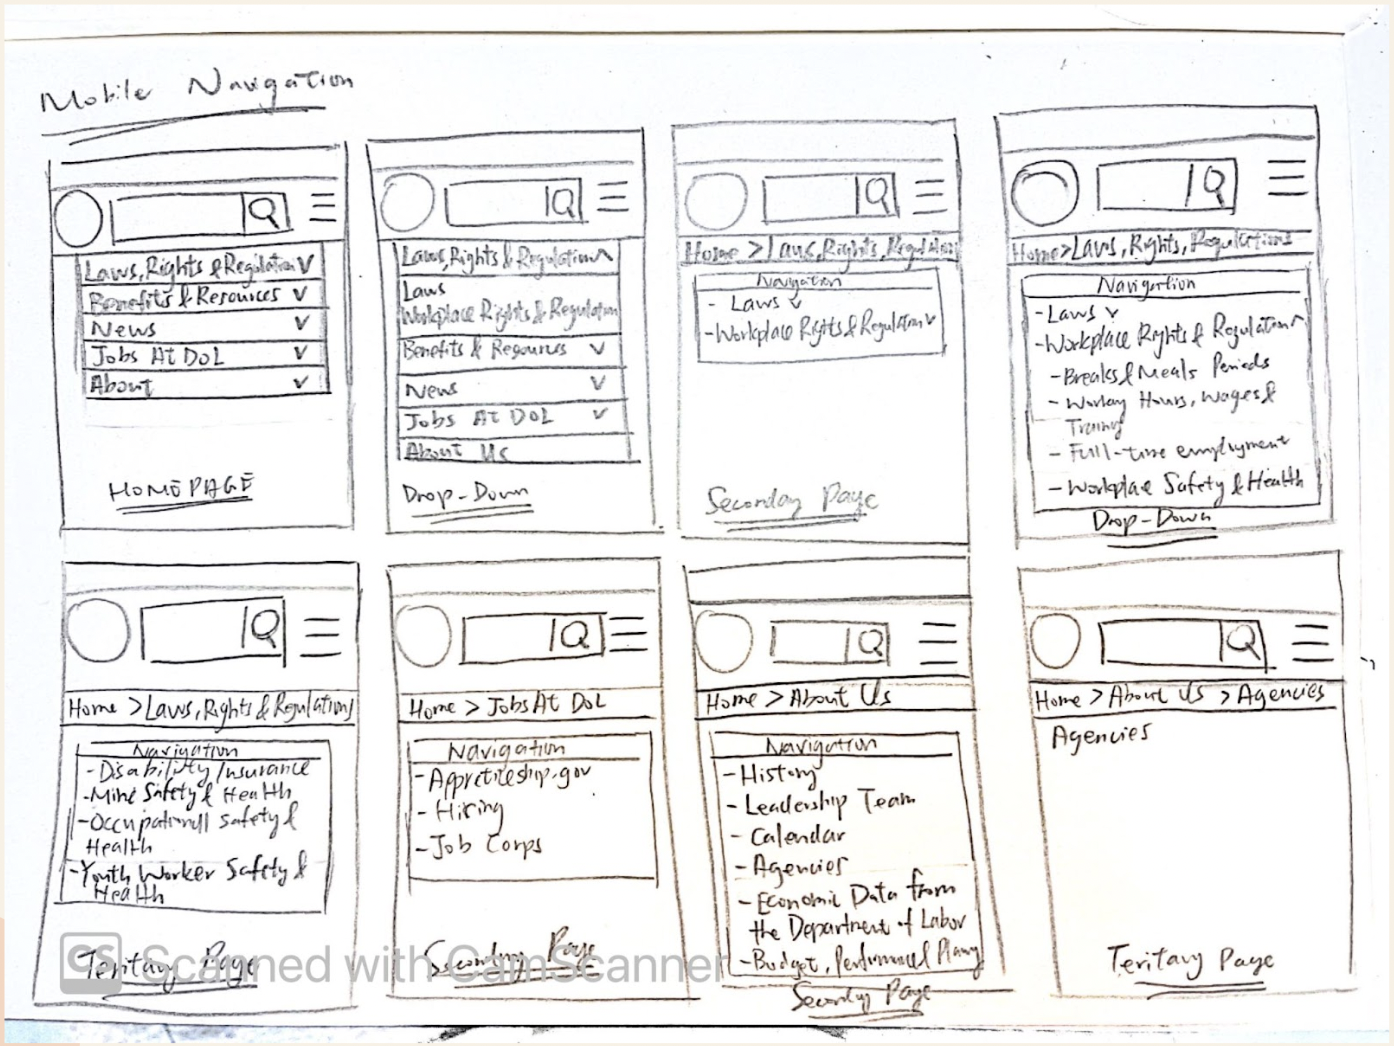 Mobile Navigation
Laws, Rights & Regulation
Benefits & Resources
News
Jobs At DoL
About
HOMEPAGE
Laws, Rights & Regulation
Laws
Workplace Rights & Regulation
Benefits & Resources
News
Jobs At DOL
About Us
Drop-Down
Home > Laws, Rights, Regulations
Navigation
- Laws
- Workplace Rights & Regulation
Secondary Page
Home > Laws, Rights, Regulations
Navigation
- Laws
- Workplace Rights & Regulation
- Breaks & Meals Periods
- Workday Hours, Wages &
- Full-time employment
- Workplace Safety & Health
Drop-Down
Home > Laws, Rights & Regulations
Navigation
- Disability Insurance
- Mine Safety & Health
- Occupational Safety &
Health
- Youth Worker Safety &
Health
Teritary Page
Home > Jobs At DoL
Navigation
- Apprenticeship.gov
- Hiring
- Job Corps
Secondary Page
Home > About Us
Navigation
- History
- Leadership Team
- Calendar
- Agencies
- Economic Data from
the Department of Labor
- Budget, Performance & Planning
Secondary Page
Home > About Us > Agencies
Agencies
Teritary Page
CS Scanned with CamScanner